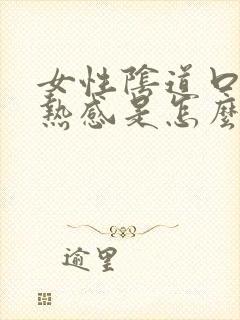 女性陰道口
熱感是怎麼
逾里